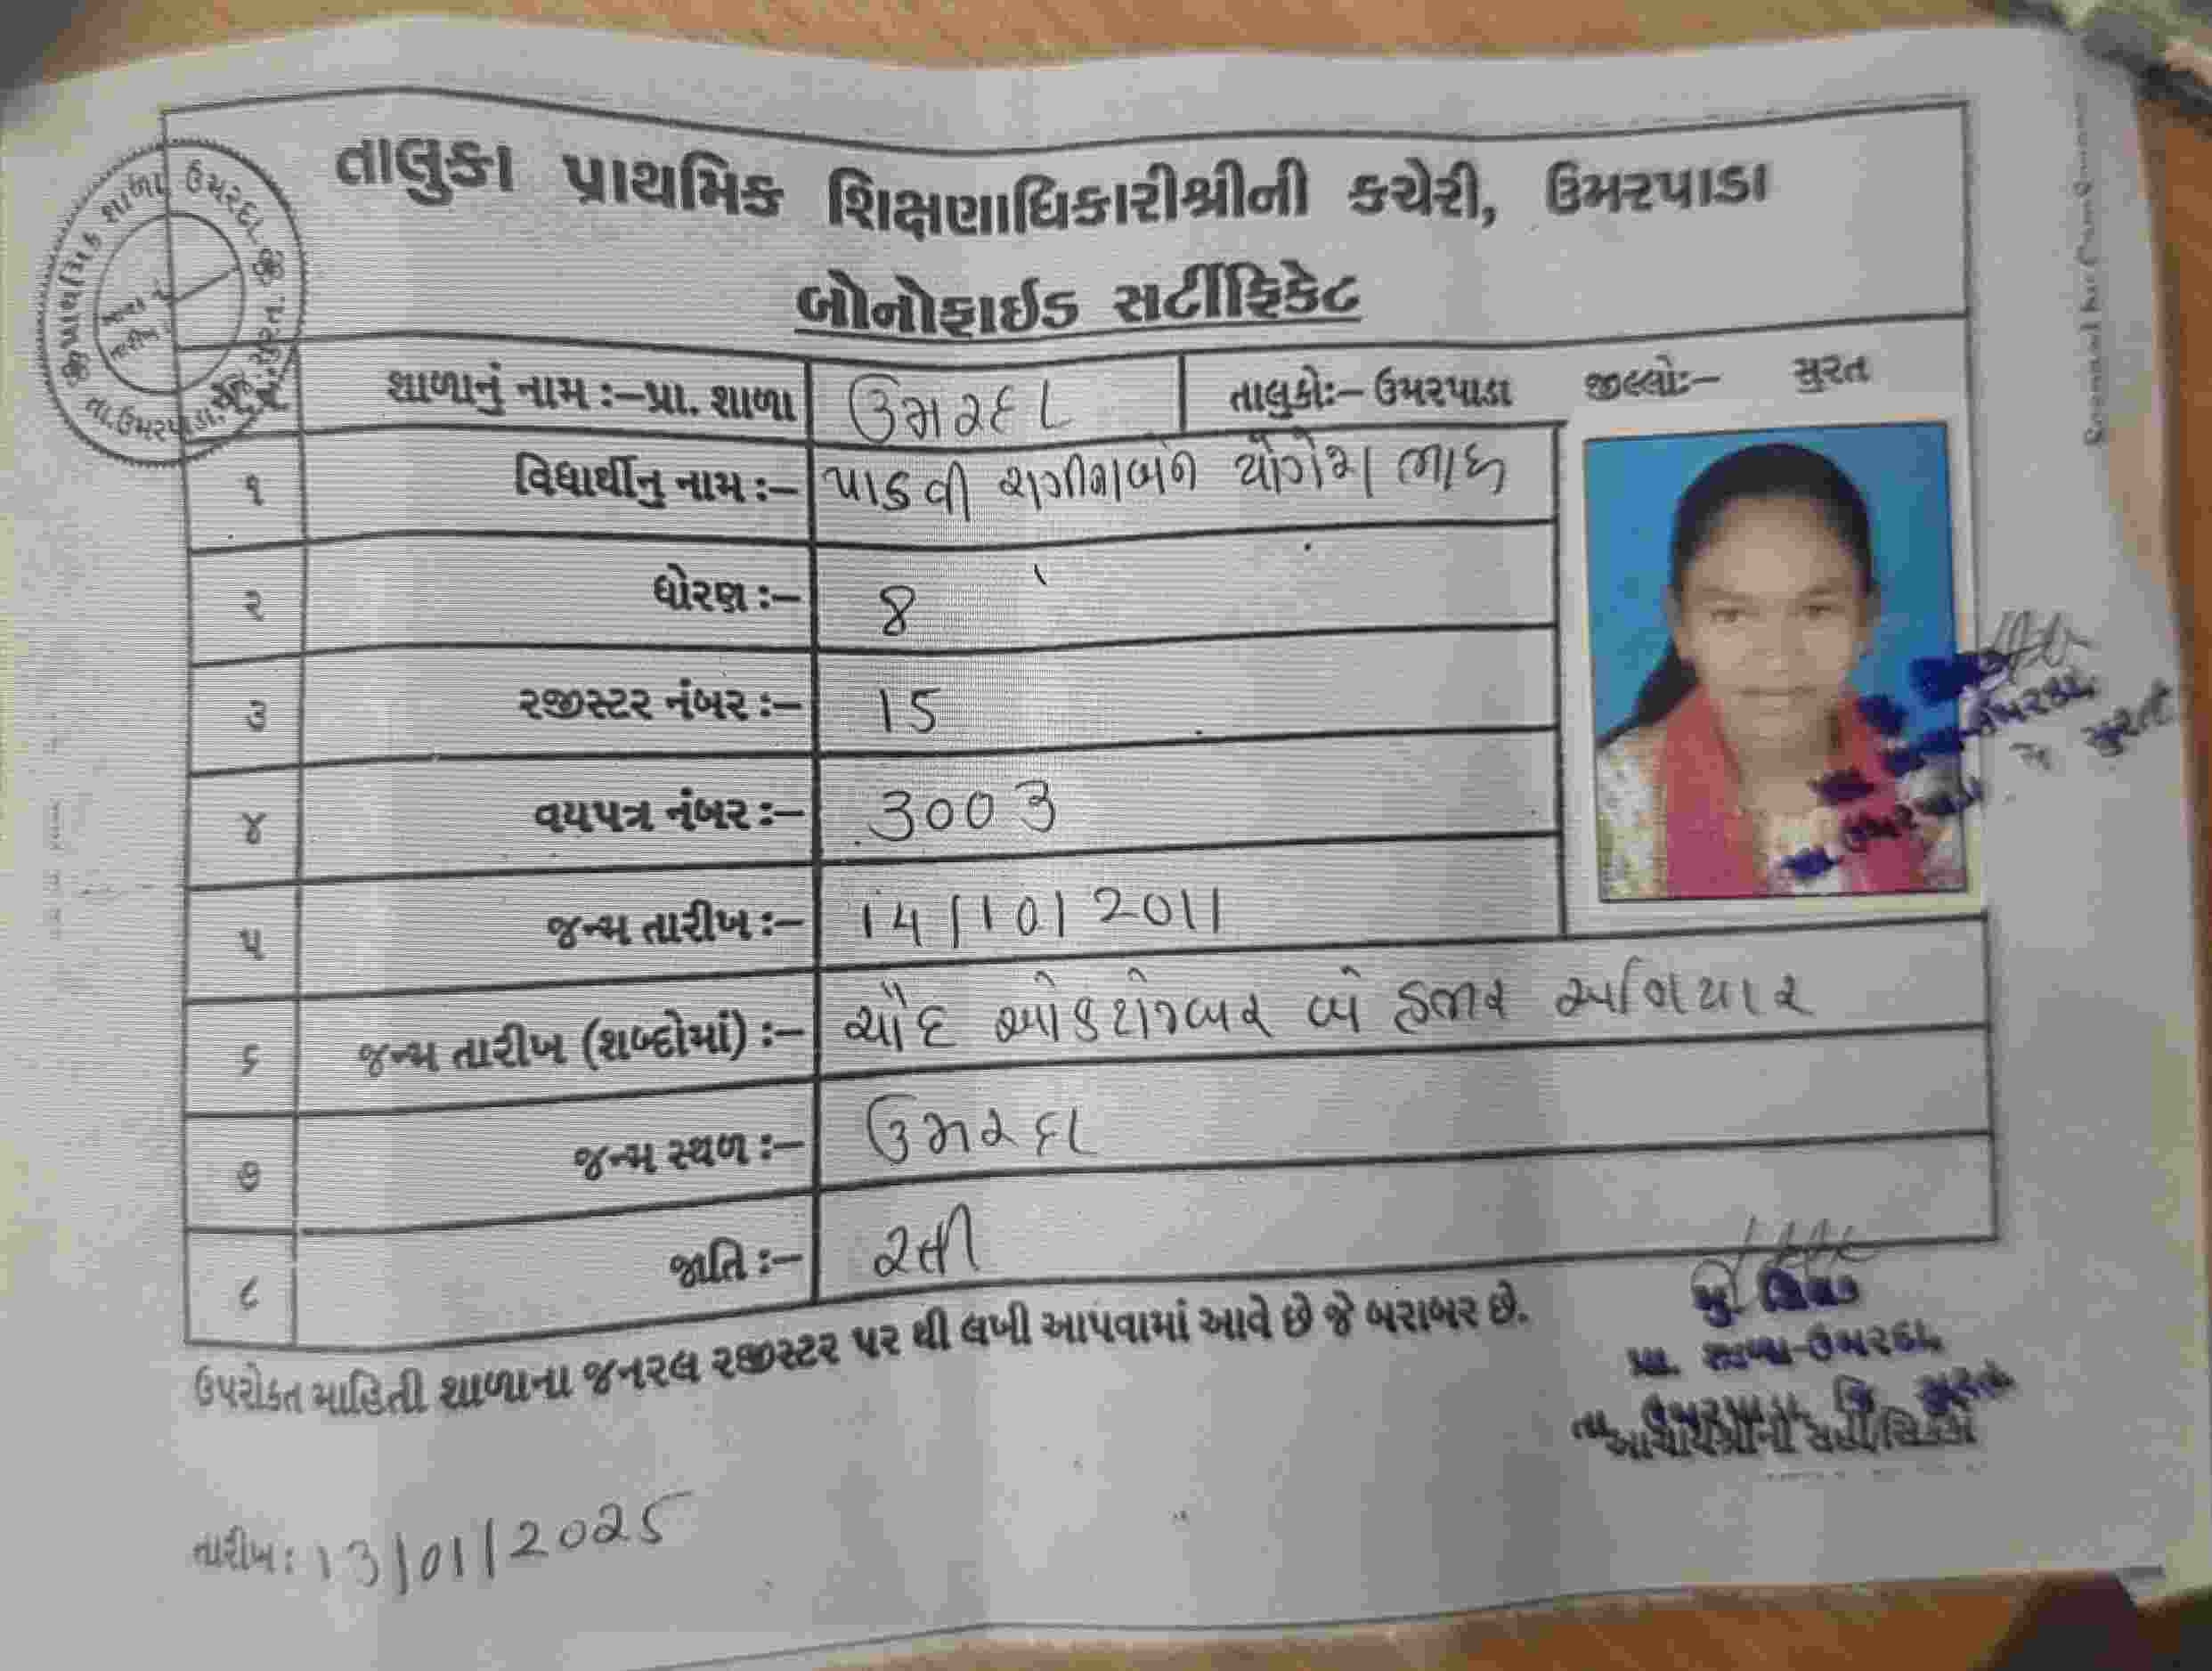 તાલુકા પ્રાથમિક શિક્ષણાધિકારીશ્રીની કચેરી, ઉમરપાડા
બોનોફાઈડ સર્ટીફિકેટ
પ્રાથમિક શાળા ઉમરદા
તા.ઉમરપાડા. સુરત
તારીખ
શાળાનું નામ :–પ્રા. શાળા ઉમરદા તાલુકોઃ– ઉમરપાડા જીલ્લોઃ– સુરત
૧ વિદ્યાર્થીનુ નામ :– પાડવી યોગેશભાઇ
૨ ધોરણ :– 8
૩ રજીસ્ટર નંબર :– 15
૪ વયપત્ર નંબર :– 3003
૫ જન્મ તારીખ :– 14/10/2011
૬ જન્મ તારીખ (શબ્દોમાં) :– ચૌદ ઓકટોમ્બર બે હજાર અગિયાર
૭ જન્મ સ્થળ :– ઉમરદા
૮ જાતિ :– સ્ત્રી
ઉમરદા
સુરત
ઉપરોકત માહિતી શાળાના જનરલ રજીસ્ટર પર થી લખી આપવામાં આવે છે જે બરાબર છે.
પ્રા. શાળા-ઉમરદા
તા. ઉમરપાડા જિ. સુરત
આચાર્યશ્રીની સહી/સિકકો
તારીખ : 13/01/2025